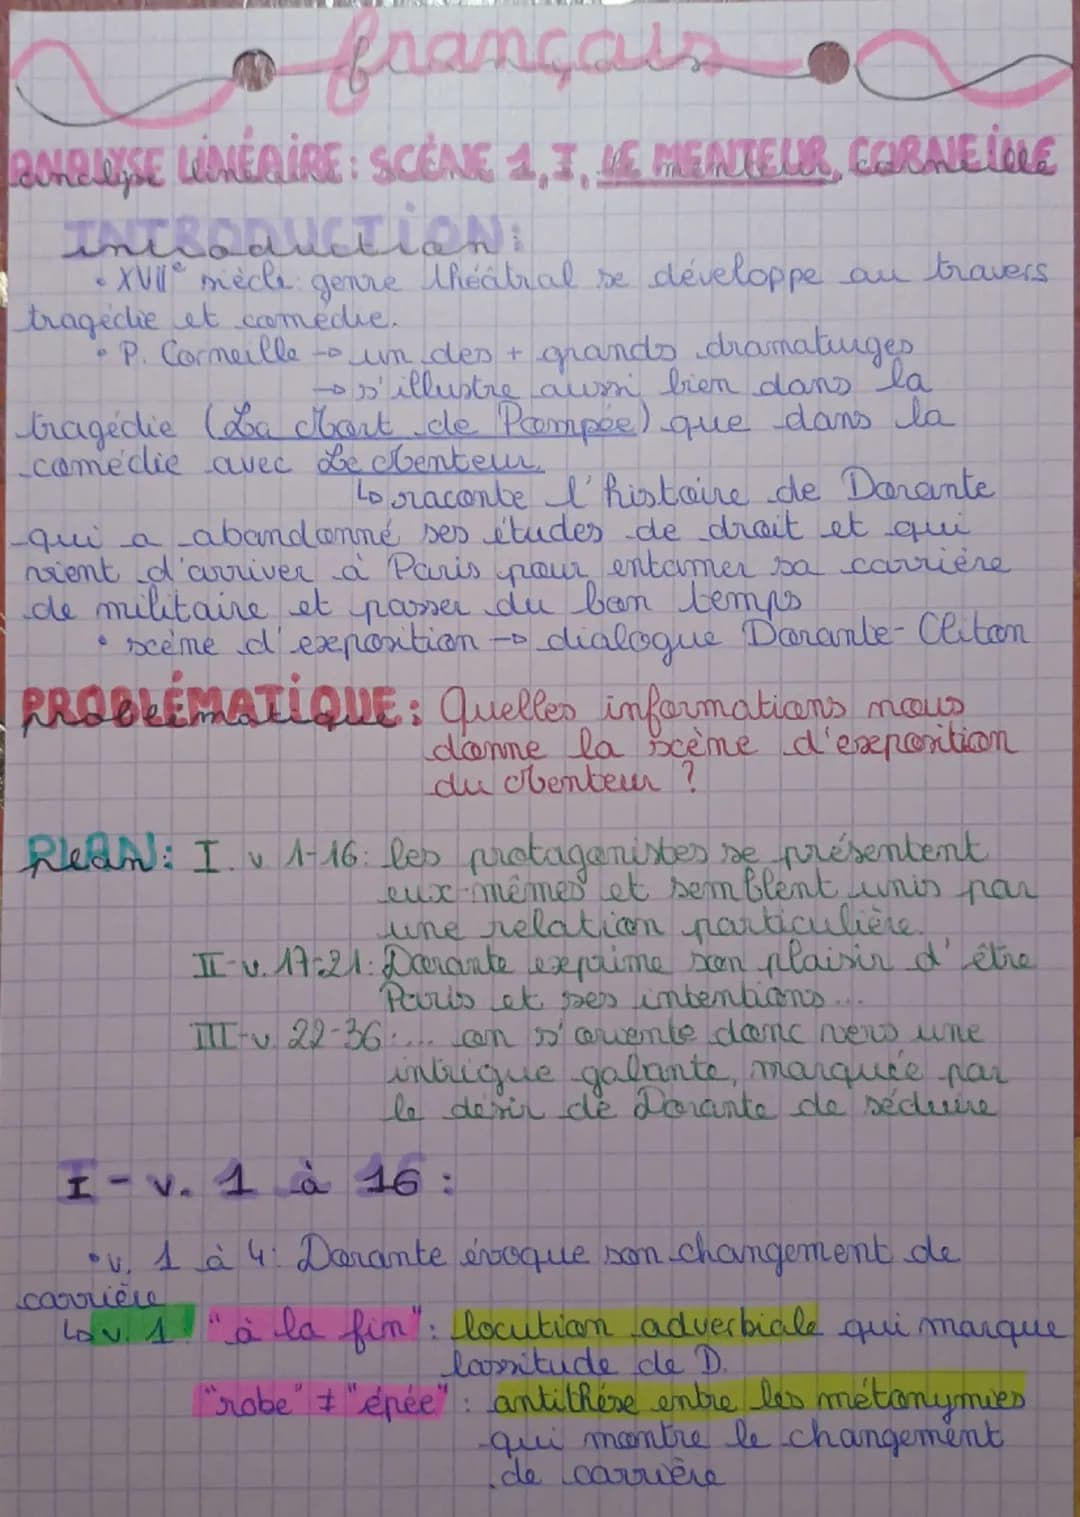 français
ANALYSE LINÉAIRE: SCÈNE 1, I, LE MENTEUR, CORNEILLE
INTRODUCTION:
• XVIIe siècle: genre théâtral se développe au travers
tragédie et comédie.
• P. Corneille → un des + grands dramaturges
→ s'illustre aussi bien dans la
tragédie (La Mort de Pompée) que dans la
comédie avec Le Menteur.
↳ raconte l'histoire de Dorante
qui a abandonné ses études de droit et qui
vient d'arriver à Paris pour entamer sa carrière
de militaire et passer du bon temps
• scène d'exposition → dialogue Dorante-Cliton
PROBLÉMATIQUE: Quelles informations nous
donne la scène d'exposition
du Menteur ?
PLAN: I. v 1-16: les protagonistes se présentent
eux-mêmes et semblent unis par
une relation particulière.
II-v. 17-21: Dorante exprime son plaisir d'être
Paris et ses intentions...
III-v. 22-36:... on s'oriente donc vers une
intrigue galante, marquée par
le désir de Dorante de séduire
I - v. 1 à 16 :
• v. 1 à 4: Dorante évoque son changement de
carrière
↳ v. 1: "à la fin": locution adverbiale qui marque
lassitude de D.
"robe" ≠ "épée": antithèse entre les métonymies
qui montre le changement
de carrière